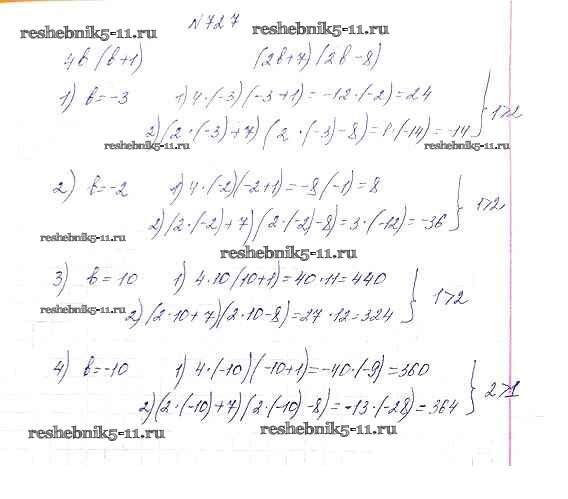 N 727
reshebnik5-11.ru reshebnik5-11.ru
4b (b+1) (2b+7)(2b-8)
1) b=-3 1) 4·(-3)(-3+1)=-12·(-2)=24
2)(2·(-3)+7)(2·(-3)-8)=1·(-14)=-14 } 1>2
reshebnik5-11.ru reshebnik5-11.ru
2) b=-2 1) 4·(-2)(-2+1)=-8(-1)=8
2)(2·(-2)+7)(2·(-2)-8)=3·(-12)=-36 } 1>2
reshebnik5-11.ru
reshebnik5-11.ru
3) b=10 1) 4·10(10+1)=40·11=440
reshebnik5-11.ru
2)(2·10+7)(2·10-8)=27·12=324 } 1>2
4) b=-10 1) 4·(-10)(-10+1)=-40·(-9)=360
2)(2·(-10)+7)(2·(-10)-8)=-13·(-28)=364 } 2>1
reshebnik5-11.ru reshebnik5-11.ru